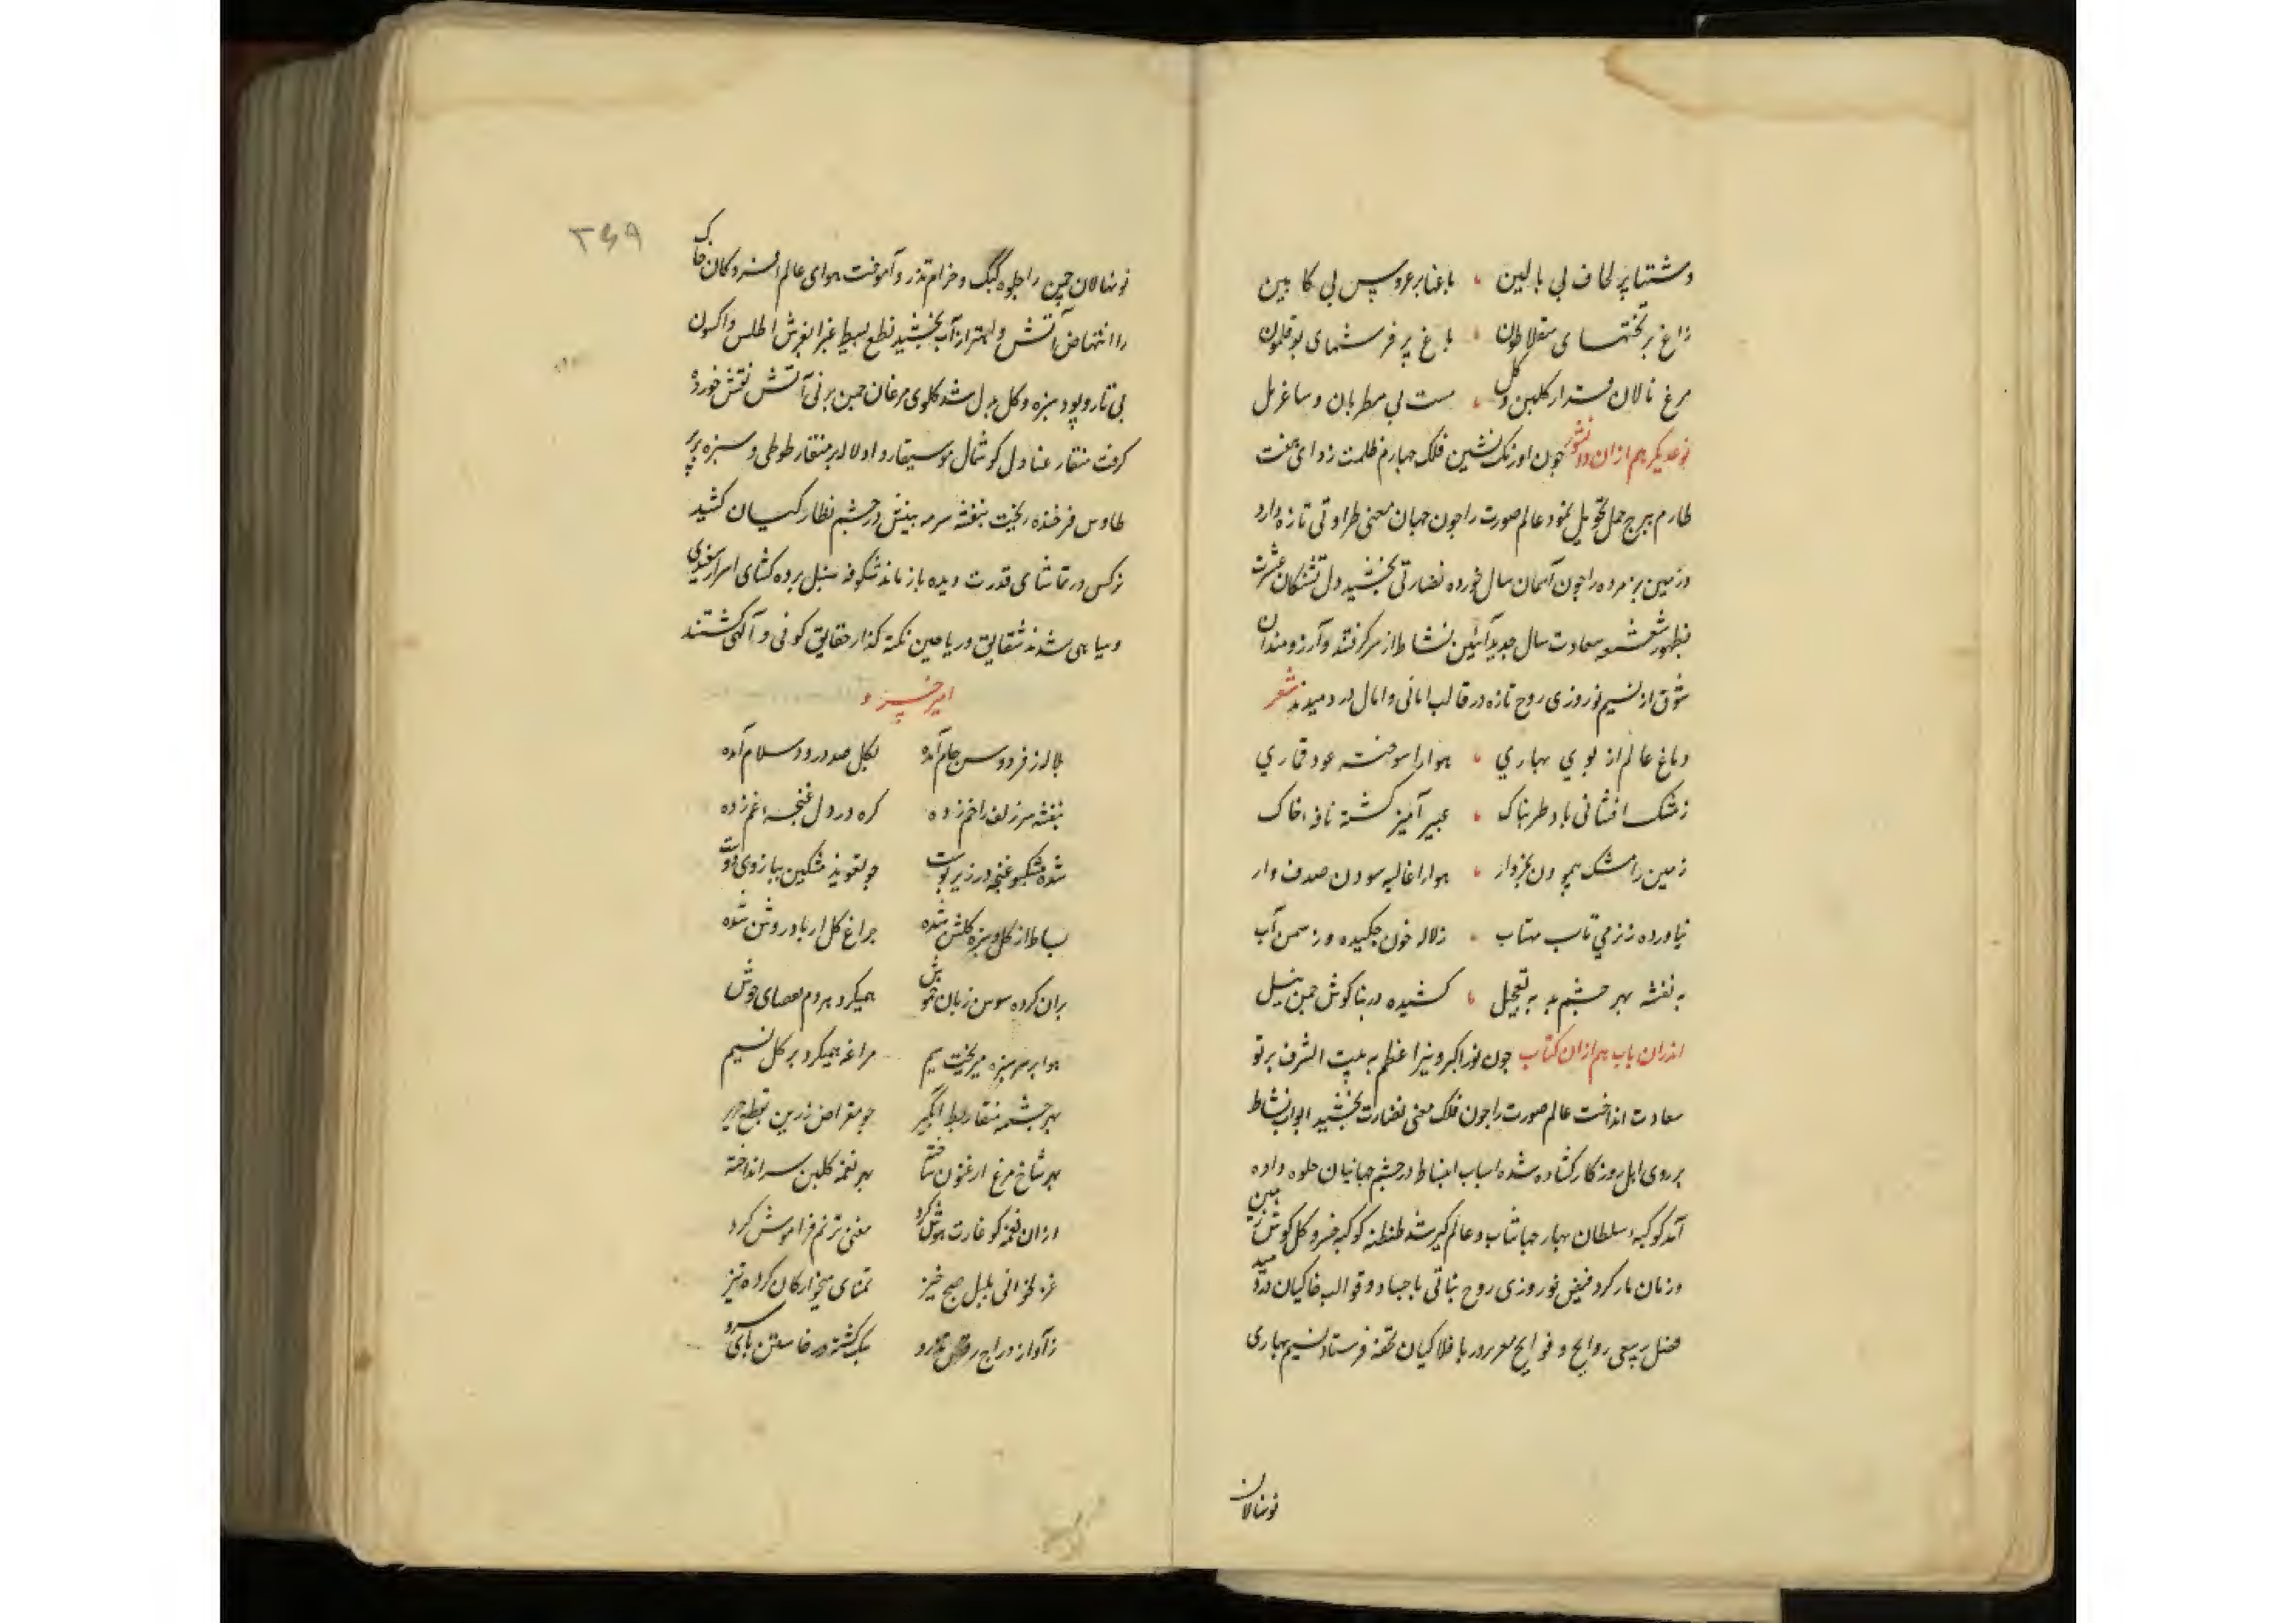 دشتها پر لحاف بی بالین ، باغها پر عروس بی کابین
زاغ بر تختهای سقلاطون ، باغ پر فرشهای بوقلمون
مرغ نالان فتد از کلبن و کل ، مست بی مطربان و ساغر مل
نوعدیکر هم ازان دو نشور جون اورنک نشین فلک جهارم ظلمت زدای هفت
طارم ببرج حمل تحویل نمود عالم صورت را جون جهان معنی طراوتی تازه دارد
و زمین بزمرده را جون آسمان سال خورده نضارتی بخشید دل تشنکان عشرت
بظهور شعشعه سعادت سال جدید آئین نشاط از سر کرفتند و آرزومندان
شوق از نسیم نوروزی روح تازه در قالب امانی و امال در دمیدند شعر
دماغ عالم از بوی بهاری ، هوا را سوخته عود قماری
زمشک افشانی باد طربناک ، عبیر آمیز کشته نافه خاک
زمین را مشک بجردار ، هوا را غالیه سودن صدف وار
نیاورده ز نرمی تاب مهتاب ، زلاله خون جکیده وز سمن آب
بنفشه بهر جشم بد به تعجیل ، کشیده در بناکوش جمن نیل
اندران باب هم ازان کتاب جون نور اکبر و نیر اعظم به بیت الشرف برتو
سعادت انداخت عالم صورت را جون فلک معنی نضارت بخشید ابواب نشاط
بر روی اهل روزکار کشاده شده اسباب انبساط در جشم جهانیان جلوه داده
آمد کوکبه سلطان بهار جهانتاب و عالم کیر شد طنطنه کوکبه خسرو کل کوش زمین
و زمان بار کرد فیض نوروزی روح نباتی باجساد و قوالب خاکیان در دمید
فضل ربیعی روایح و فوایح با فلاکیان تحفه فرستاد نسیم بهاری
نونهالان
۲۶۹
نونهالان جمن را جلوه کبک و خرام تذرو آموخت هوای عالم افسردکان خاک
را انتهاض آتش و اهتزاز آب بخشید نطع بسیط غبرا بفرش اطلس و اکسون
بی تار و پود سبزه و کل مبدل شد کلوی مرغان جمن بر نی آتش نقش خورده
کرفت منقار عنادل کوشمال موسیقار داد لاله بر منقار طوطی و سبزه بر پر
طاوس فر خنده ریخت بنفشه سرمه بینش در جشم نظارکیان کشید
نرکس در تماشای قدرت دیده باز ماند شکوفه سنبل برده کشای اسرار سفیدی
و سیاهی شدند شقایق و ریاحین نکته کذار حقایق کونی و آلهی کشتند
امیر خسرو
بلاله ز فردوس جام آمده بکل صد درود و سلام آمده
بنفشه سر زلف را خم زده کره در دل غنجه غم زده
شده مشکبو غنجه در زیر پوست جو تعویذ مشکین ببازوی دوست
بساط از کل و سبزه کلشن شده جراغ کل از باد روشن شده
بران کرده سوسن زبان خموش همیکرد بر دم جوش
هوا بر سر سبزه میریخت سیم مراغه همیکرد بر کل نسیم
بهر جشمه منقار بط آبکیر جو مقراض زرین بقطع حریر
بهر شاخ مرغ ارغنون ساخته بهر نغمه کلبن سر انداخته
ازان نغمه کو غارت هوش کرد مغنی ترنم فراموش کرد
غزلخوانی بلبل صبح خیز تمنای میخوارکان کرده تیز
ز آواز دراج رقص تذرو سبک کشته در خاستن بای سرو